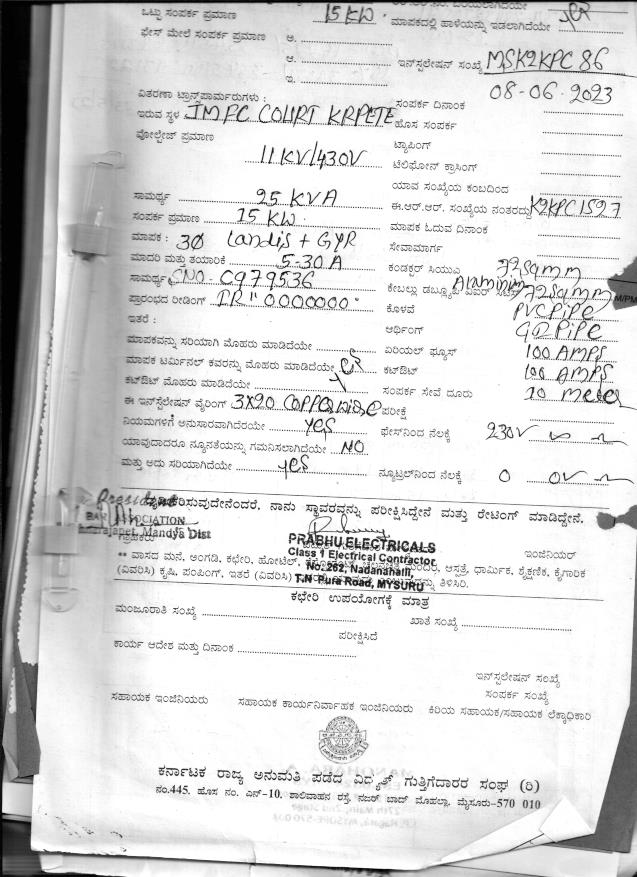 ಒಟ್ಟು ಸಂಪರ್ಕ ಪ್ರಮಾಣ 15 KW. ಮಾಪಕದಲ್ಲಿ ಹಾಳೆಯನ್ನು ಇಡಲಾಗಿದೆಯೇ
ಫೇಸ್ ಮೇಲೆ ಸಂಪರ್ಕ ಪ್ರಮಾಣ ಅ.
ಆ. ಇನ್‌ಸ್ಟಲೇಷನ್ ಸಂಖ್ಯೆ MSK2KPC 86
ಇ.
ವಿತರಣಾ ಟ್ರಾನ್ಸ್‌ಫಾರ್ಮರುಗಳು : ಸಂಪರ್ಕ ದಿನಾಂಕ 08-06-2023
ಇರುವ ಸ್ಥಳ JMFC COURT KRPETE ಹೊಸ ಸಂಪರ್ಕ
ವೋಲ್ಟೇಜ್ ಪ್ರಮಾಣ 11KV/430V ಟ್ಯಾಪಿಂಗ್
ಟೆಲಿಫೋನ್ ಕ್ರಾಸಿಂಗ್
ಯಾವ ಸಂಖ್ಯೆಯ ಕಂಬದಿಂದ
ಸಾಮರ್ಥ್ಯ 25 KVA ಈ.ಆರ್.ಆರ್. ಸಂಖ್ಯೆಯ ನಂತರದ್ದು K2KPC1527
ಸಂಪರ್ಕ ಪ್ರಮಾಣ 15 KW. ಮಾಪಕ ಓದುವ ದಿನಾಂಕ
ಮಾಪಕ : 3Ø Landis + GYR ಸೇವಾಮಾರ್ಗ
ಮಾದರಿ ಮತ್ತು ತಯಾರಿಕೆ 5-30 A ಕಂಡಕ್ಟರ್ ಸಿಯುಎ
ಸಾಮರ್ಥ್ಯ SNO- C979536 ಕೇಬಲ್ಲು Aluminium
ಪ್ರಾರಂಭದ ರೀಡಿಂಗ್ IR "0000000" ಕೊಳವೆ PVC PiPe
ಇತರೆ : ಅರ್ಥಿಂಗ್ PiPe
ಮಾಪಕವನ್ನು ಸರಿಯಾಗಿ ಮೊಹರು ಮಾಡಿದೆಯೇ ಏರಿಯಲ್ ಫ್ಯೂಸ್ 100 AMPS
ಮಾಪಕ ಟರ್ಮಿನಲ್ ಕವರನ್ನು ಮೊಹರು ಮಾಡಿದೆಯೇ ಕಟ್‌ಔಟ್ 100 AMPS
ಕಟ್‌ಔಟ್ ಮೊಹರು ಮಾಡಿದೆಯೇ ಸಂಪರ್ಕ ಸೇವೆ ದೂರು 10 meter
ಈ ಇನ್‌ಸ್ಟಲೇಷನ್ ವೈರಿಂಗ್ 3X20 COPPER ಪರೀಕ್ಷೆ
ನಿಯಮಗಳಿಗೆ ಅನುಸಾರವಾಗಿದೆರಯೇ yes ಫೇಸ್‌ನಿಂದ ನೆಲಕ್ಕೆ 230V
ಯಾವುದಾದರೂ ನ್ಯೂನತೆಯನ್ನು ಗಮನಿಸಲಾಗಿದೆಯೇ NO
ಮತ್ತು ಅದು ಸರಿಯಾಗಿದೆಯೇ yes ನ್ಯೂಟ್ರಲ್‌ನಿಂದ ನೆಲಕ್ಕೆ 0 0V
President ದೃಢೀಕರಿಸುವುದೇನೆಂದರೆ, ನಾನು ಸ್ಥಾವರವನ್ನು ಪರೀಕ್ಷಿಸಿದ್ದೇನೆ ಮತ್ತು ರೇಟಿಂಗ್ ಮಾಡಿದ್ದೇನೆ.
BAR ASSOCIATION
Mandya Dist
ಗ್ರಾಹಕರು PRABHU ELECTRICALS ಇಂಜಿನಿಯರ್
Class 1 Electrical Contractor
** ವಾಸದ ಮನೆ, ಅಂಗಡಿ, ಕಛೇರಿ, ಹೋಟೆಲ್, ಆಸ್ಪತ್ರೆ, ಧಾರ್ಮಿಕ, ಶೈಕ್ಷಣಿಕ, ಕೈಗಾರಿಕ
No.262, Nadanahalli,
(ವಿವರಿಸಿ) ಕೃಷಿ, ಪಂಪಿಂಗ್, ಇತರೆ (ವಿವರಿಸಿ) ತಿಳಿಸಿರಿ.
T.N Pura Road, MYSURU
ಕಛೇರಿ ಉಪಯೋಗಕ್ಕೆ ಮಾತ್ರ
ಮಂಜೂರಾತಿ ಸಂಖ್ಯೆ ಖಾತೆ ಸಂಖ್ಯೆ
ಪರೀಕ್ಷಿಸಿದೆ
ಕಾರ್ಯ ಆದೇಶ ಮತ್ತು ದಿನಾಂಕ
ಇನ್‌ಸ್ಟಲೇಷನ್ ಸಂಖ್ಯೆ
ಸಂಪರ್ಕ ಸಂಖ್ಯೆ
ಸಹಾಯಕ ಇಂಜಿನಿಯರು ಸಹಾಯಕ ಕಾರ್ಯನಿರ್ವಾಹಕ ಇಂಜಿನಿಯರು ಕಿರಿಯ ಸಹಾಯಕ/ಸಹಾಯಕ ಲೆಕ್ಕಾಧಿಕಾರಿ
ಕರ್ನಾಟಕ ರಾಜ್ಯ ಅನುಮತಿ ಪಡೆದ ವಿದ್ಯುತ್ ಗುತ್ತಿಗೆದಾರರ ಸಂಘ (ರಿ)
ನಂ.445, ಹೊಸ ನಂ. ಎನ್-10, ಶಾಲಿವಾಹನ ರಸ್ತೆ, ನಜರ್ ಬಾದ್ ಮೊಹಲ್ಲಾ, ಮೈಸೂರು-570 010